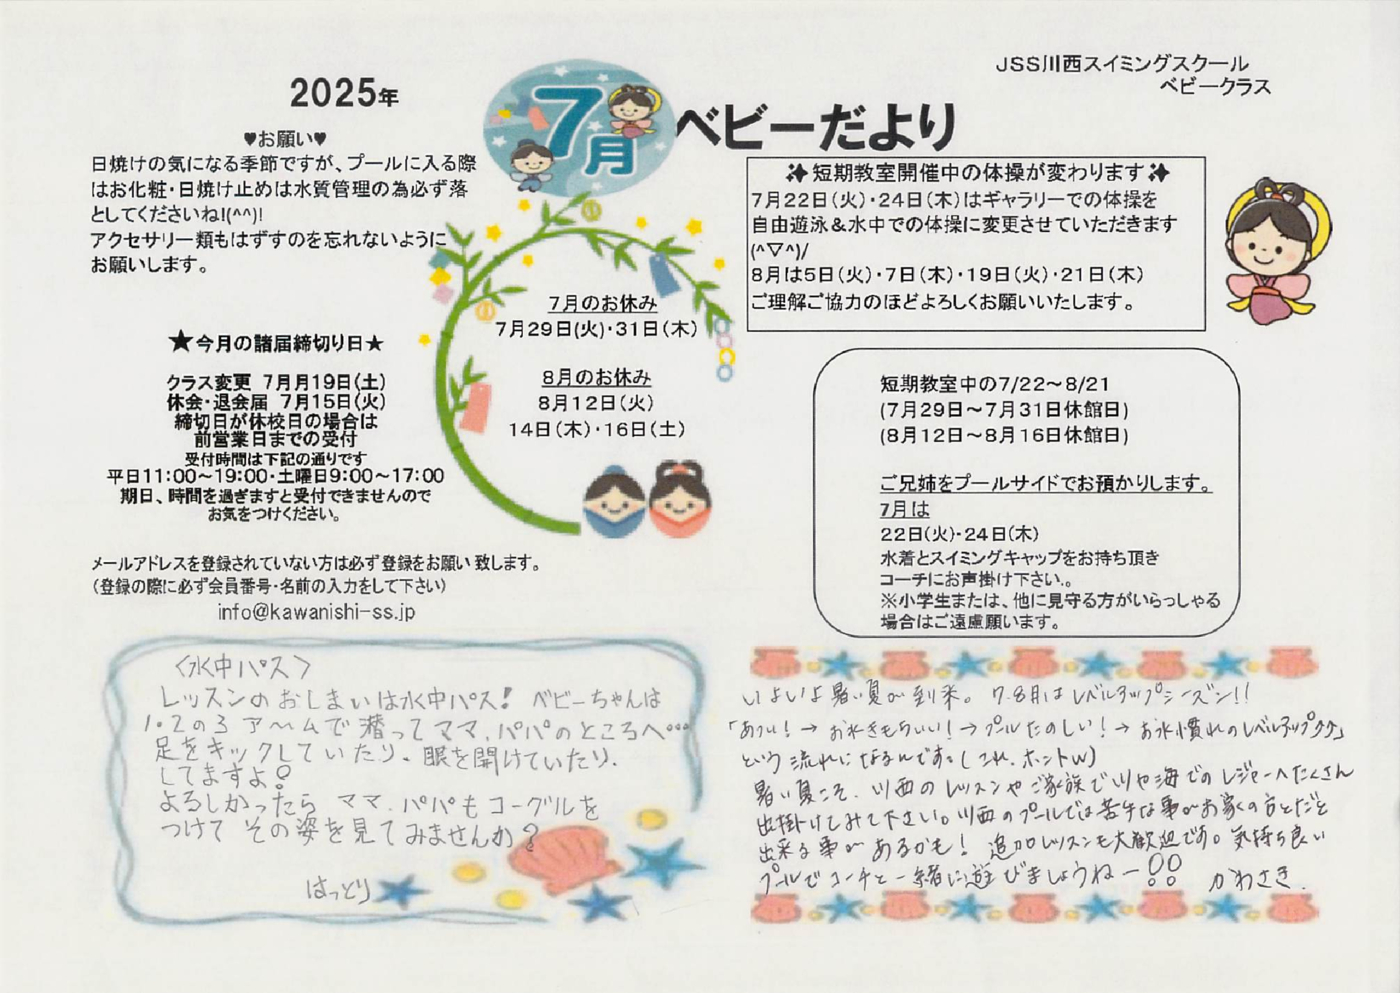 JSS川西スイミングスクール
ベビークラス
2025年
7月
ベビーだより
♥お願い♥
日焼けの気になる季節ですが、プールに入る際
はお化粧・日焼け止めは水質管理の為必ず落
としてくださいね!(^^)!
アクセサリー類もはずすのを忘れないように
お願いします。
★今月の諸届締切り日★
クラス変更 7月月19日(土)
休会・退会届 7月15日(火)
締切日が休校日の場合は
前営業日までの受付
受付時間は下記の通りです
平日11:00～19:00・土曜日9:00～17:00
期日、時間を過ぎますと受付できませんので
お気をつけください。
メールアドレスを登録されていない方は必ず登録をお願い致します。
(登録の際に必ず会員番号・名前の入力をして下さい)
info@kawanishi-ss.jp
7月のお休み
7月29日(火)・31日(木)
8月のお休み
8月12日(火)
14日(木)・16日(土)
✨短期教室開催中の体操が変わります✨
7月22日(火)・24日(木)はギャラリーでの体操を
自由遊泳＆水中での体操に変更させていただきます
(^▽^)/
8月は5日(火)・7日(木)・19日(火)・21日(木)
ご理解ご協力のほどよろしくお願いいたします。
短期教室中の7/22～8/21
(7月29日～7月31日休館日)
(8月12日～8月16日休館日)
ご兄姉をプールサイドでお預かりします。
7月は
22日(火)・24日(木)
水着とスイミングキャップをお持ち頂き
コーチにお声掛け下さい.。
※小学生または、他に見守る方がいらっしゃる
場合はご遠慮願います。
〈水中パス〉
レッスンのおしまいは水中パス! ベビーちゃんは
1.2の3 ア～ムで潜ってママ、パパのところへ…
足をキックしていたり、眼を開けていたり、
してますよ。
よろしかったら ママ、パパもゴーグルを
つけて その姿を見てみませんか?
はっとり
いよいよ暑い夏が到来。7.8月はレベルアップシーズン!!
「あつい!→お水きもちいい!→プールたのしい!→お水慣れのレベルアップ
という流れになるんです。(これ、ホントw)
暑い夏こそ、川西のレッスンやご家族で川や海でのレジャーへたくさん
出掛けてみて下さい。川西のプールでは苦手な事がお家の方とだと
出来る事があるかも! 追加レッスンも大歓迎です。気持ち良い
プールでコーチと一緒に遊びましょうねー!! かわさき.